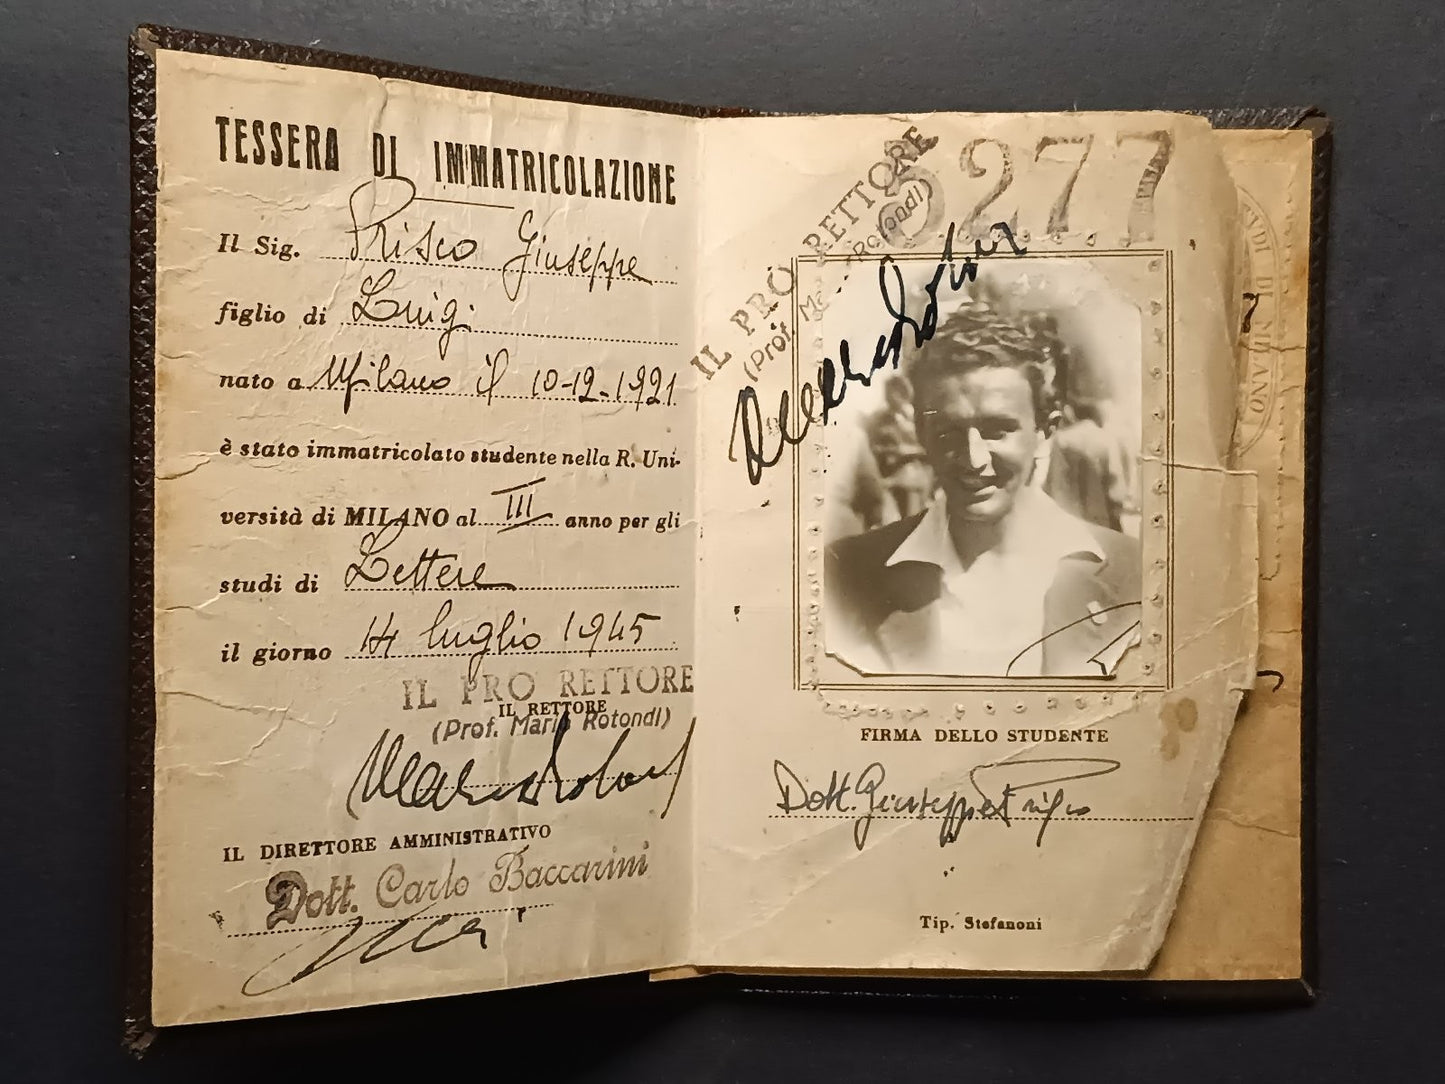 TESSERA DI IMMATRICOLAZIONE
Il Sig. Prisco Giuseppe
figlio di Luigi
nato a Milano il 10-12-1921
è stato immatricolato studente nella R. Uni-
versità di MILANO al III anno per gli
studi di Lettere
il giorno 14 luglio 1945
IL PRO RETTORE
IL RETTORE
(Prof. Mario Rotondi)
Mario Rotondi
IL DIRETTORE AMMINISTRATIVO
Dott. Carlo Baccarini
5277
IL PRO RETTORE
(Prof. Rotondi)
Mario Rotondi
FIRMA DELLO STUDENTE
Dott. Giuseppe Prisco
Tip. Stefanoni
STUDI DI MILANO